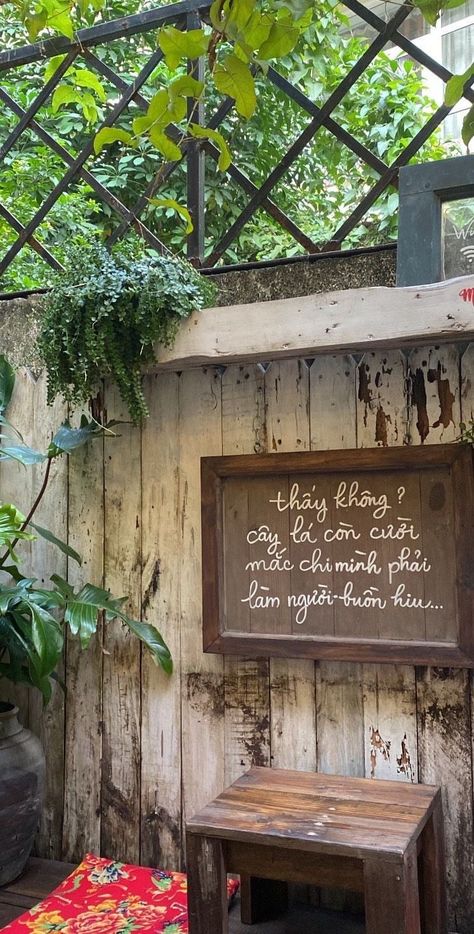 thấy không?
cây lá còn cười
mắc chi mình phải
làm người buồn hiu...